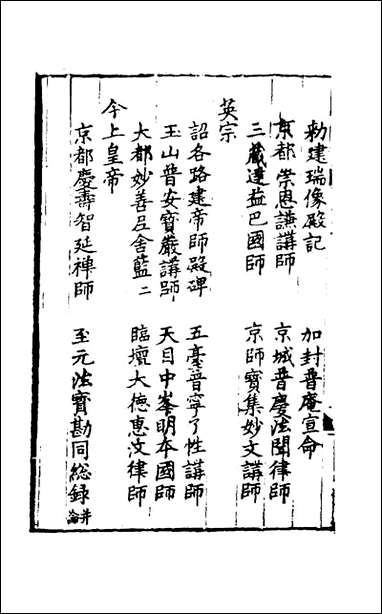 勑建瑞像殿記　加封普庵宣命
京都崇恩謙講師　京城普慶法聞律師
三藏達益巴國師　京師寶集妙文講師
英宗
詔各路建帝師殿碑　五臺普寧了性講師
玉山普安寶嚴講師　天目中峯明本國師
大都妙善尼舍藍二　臨壇大德惠汶律師
今上皇帝
京都慶壽智延禪師　至元法寶勘同總録并論